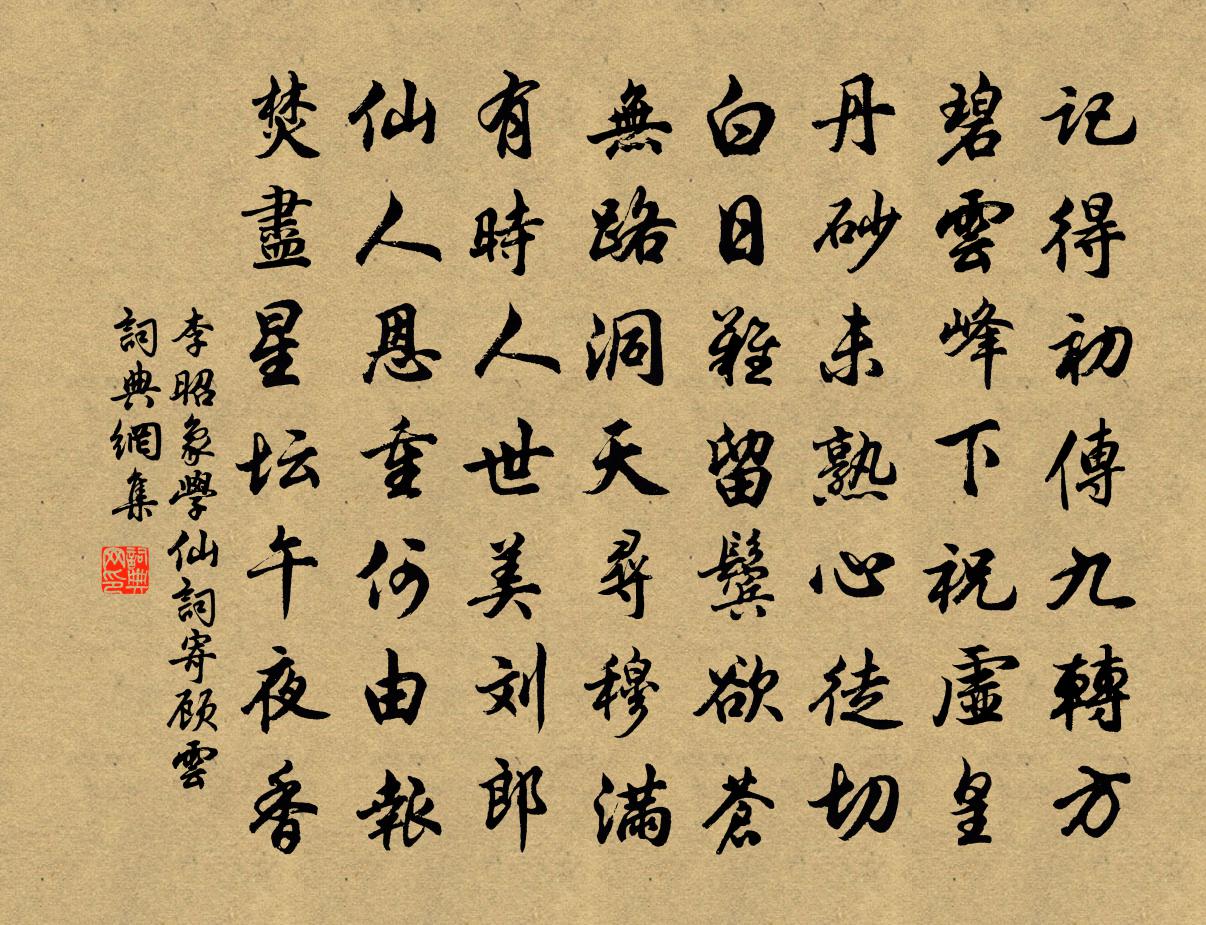 記得初傳九轉方
碧雲峰下祝虛皇
丹砂未熟心徒切
白日難留鬢欲蒼
無路洞天尋穆滿
有時人世美刘郎
仙人恩重何由報
焚盡星坛午夜香
李昭象學仙詞寄顾雲
詞典網集
詞典
网印